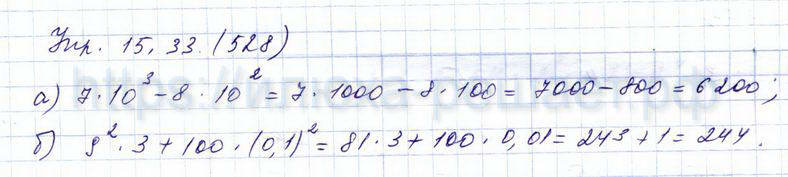 Упр. 15.33. (528)
а) 7 · 10³ – 8 · 10² = 7 · 1000 – 8 · 100 = 7000 – 800 = 6200;
б) 9² · 3 + 100 · (0,1)² = 81 · 3 + 100 · 0,01 = 243 + 1 = 244.